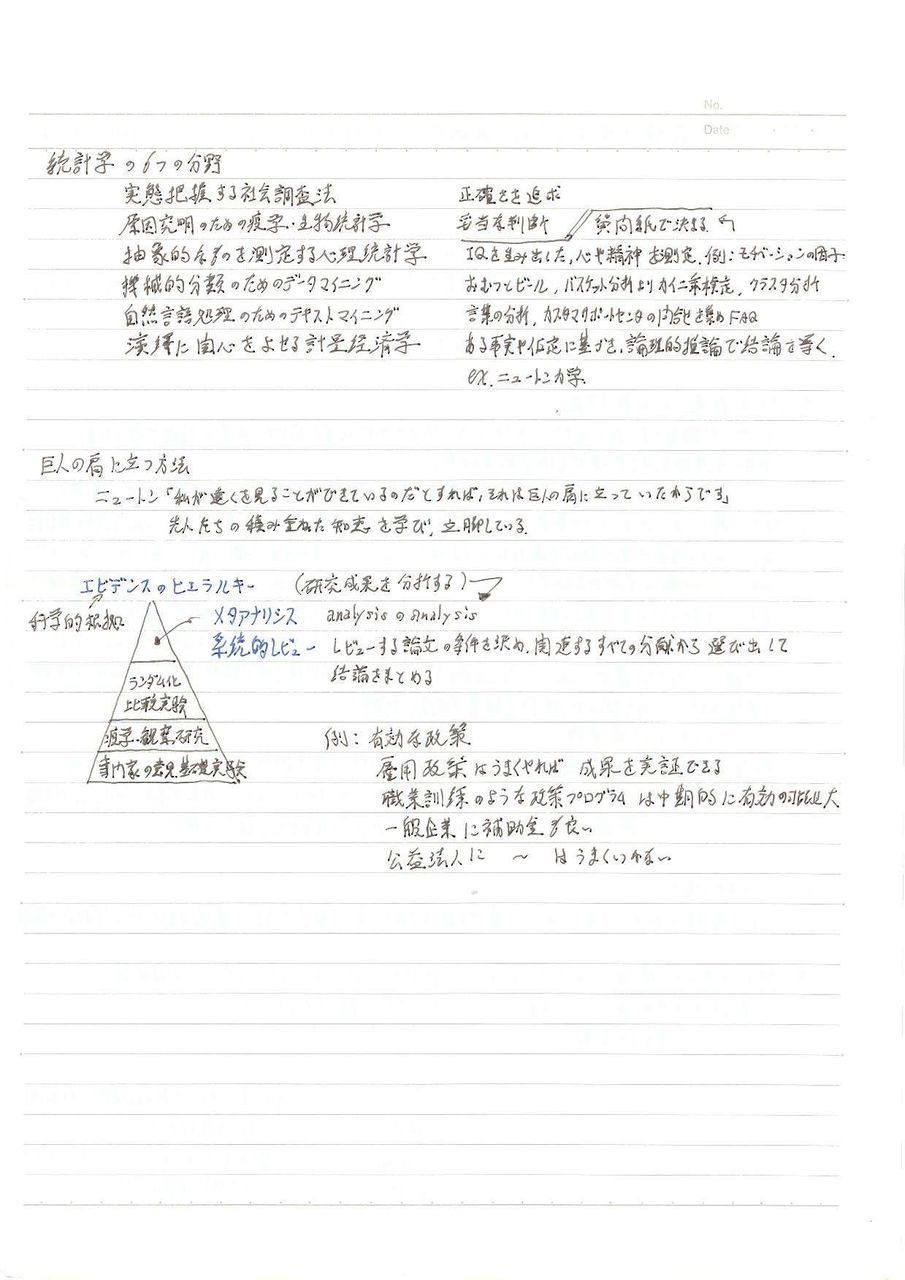 No.
Date
統計学の6つの分野
実態把握する社会調査法 正確さを追求
原因究明のための疫学・生物統計学 妥当な判断 質問紙で決まる
抽象的なものを測定する心理統計学 IQを生み出した,心や精神を測定.例:モチベーションの因子
機械的分類のためのデータマイニング おむつとビール,バスケット分析よりカイ二乗検定,クラスタ分析
自然言語処理のためのテキストマイニング 言葉の分析,カスタマサポートセンタの内容を集めFAQ
演繹に関心をよせる計量経済学 ある事実や仮定に基づき,論理的推論で結論を導く.
ex.ニュートン力学.
巨人の肩に立つ方法
ニュートン「私が遠くを見ることができているのだとすれば,それは巨人の肩に立っていたからです」
先人たちの積み重ねた知恵を学び,立脚している.
エビデンスのヒエラルキー (研究成果を分析する)
科学的根拠 メタアナリシス analysisのanalysis
系統的レビュー レビューする論文の条件を決め,関連するすべての文献から選び出して
結論をまとめる
ランダム化
比較実験
疫学・観察研究
専門家の意見,基礎実験
例:有効な政策
雇用政策はうまくやれば 成果を実証できる
職業訓練のような政策プログラムは中期的に有効の可能性大
一般企業に補助金も良い
公益法人に 〜 はうまくいかない